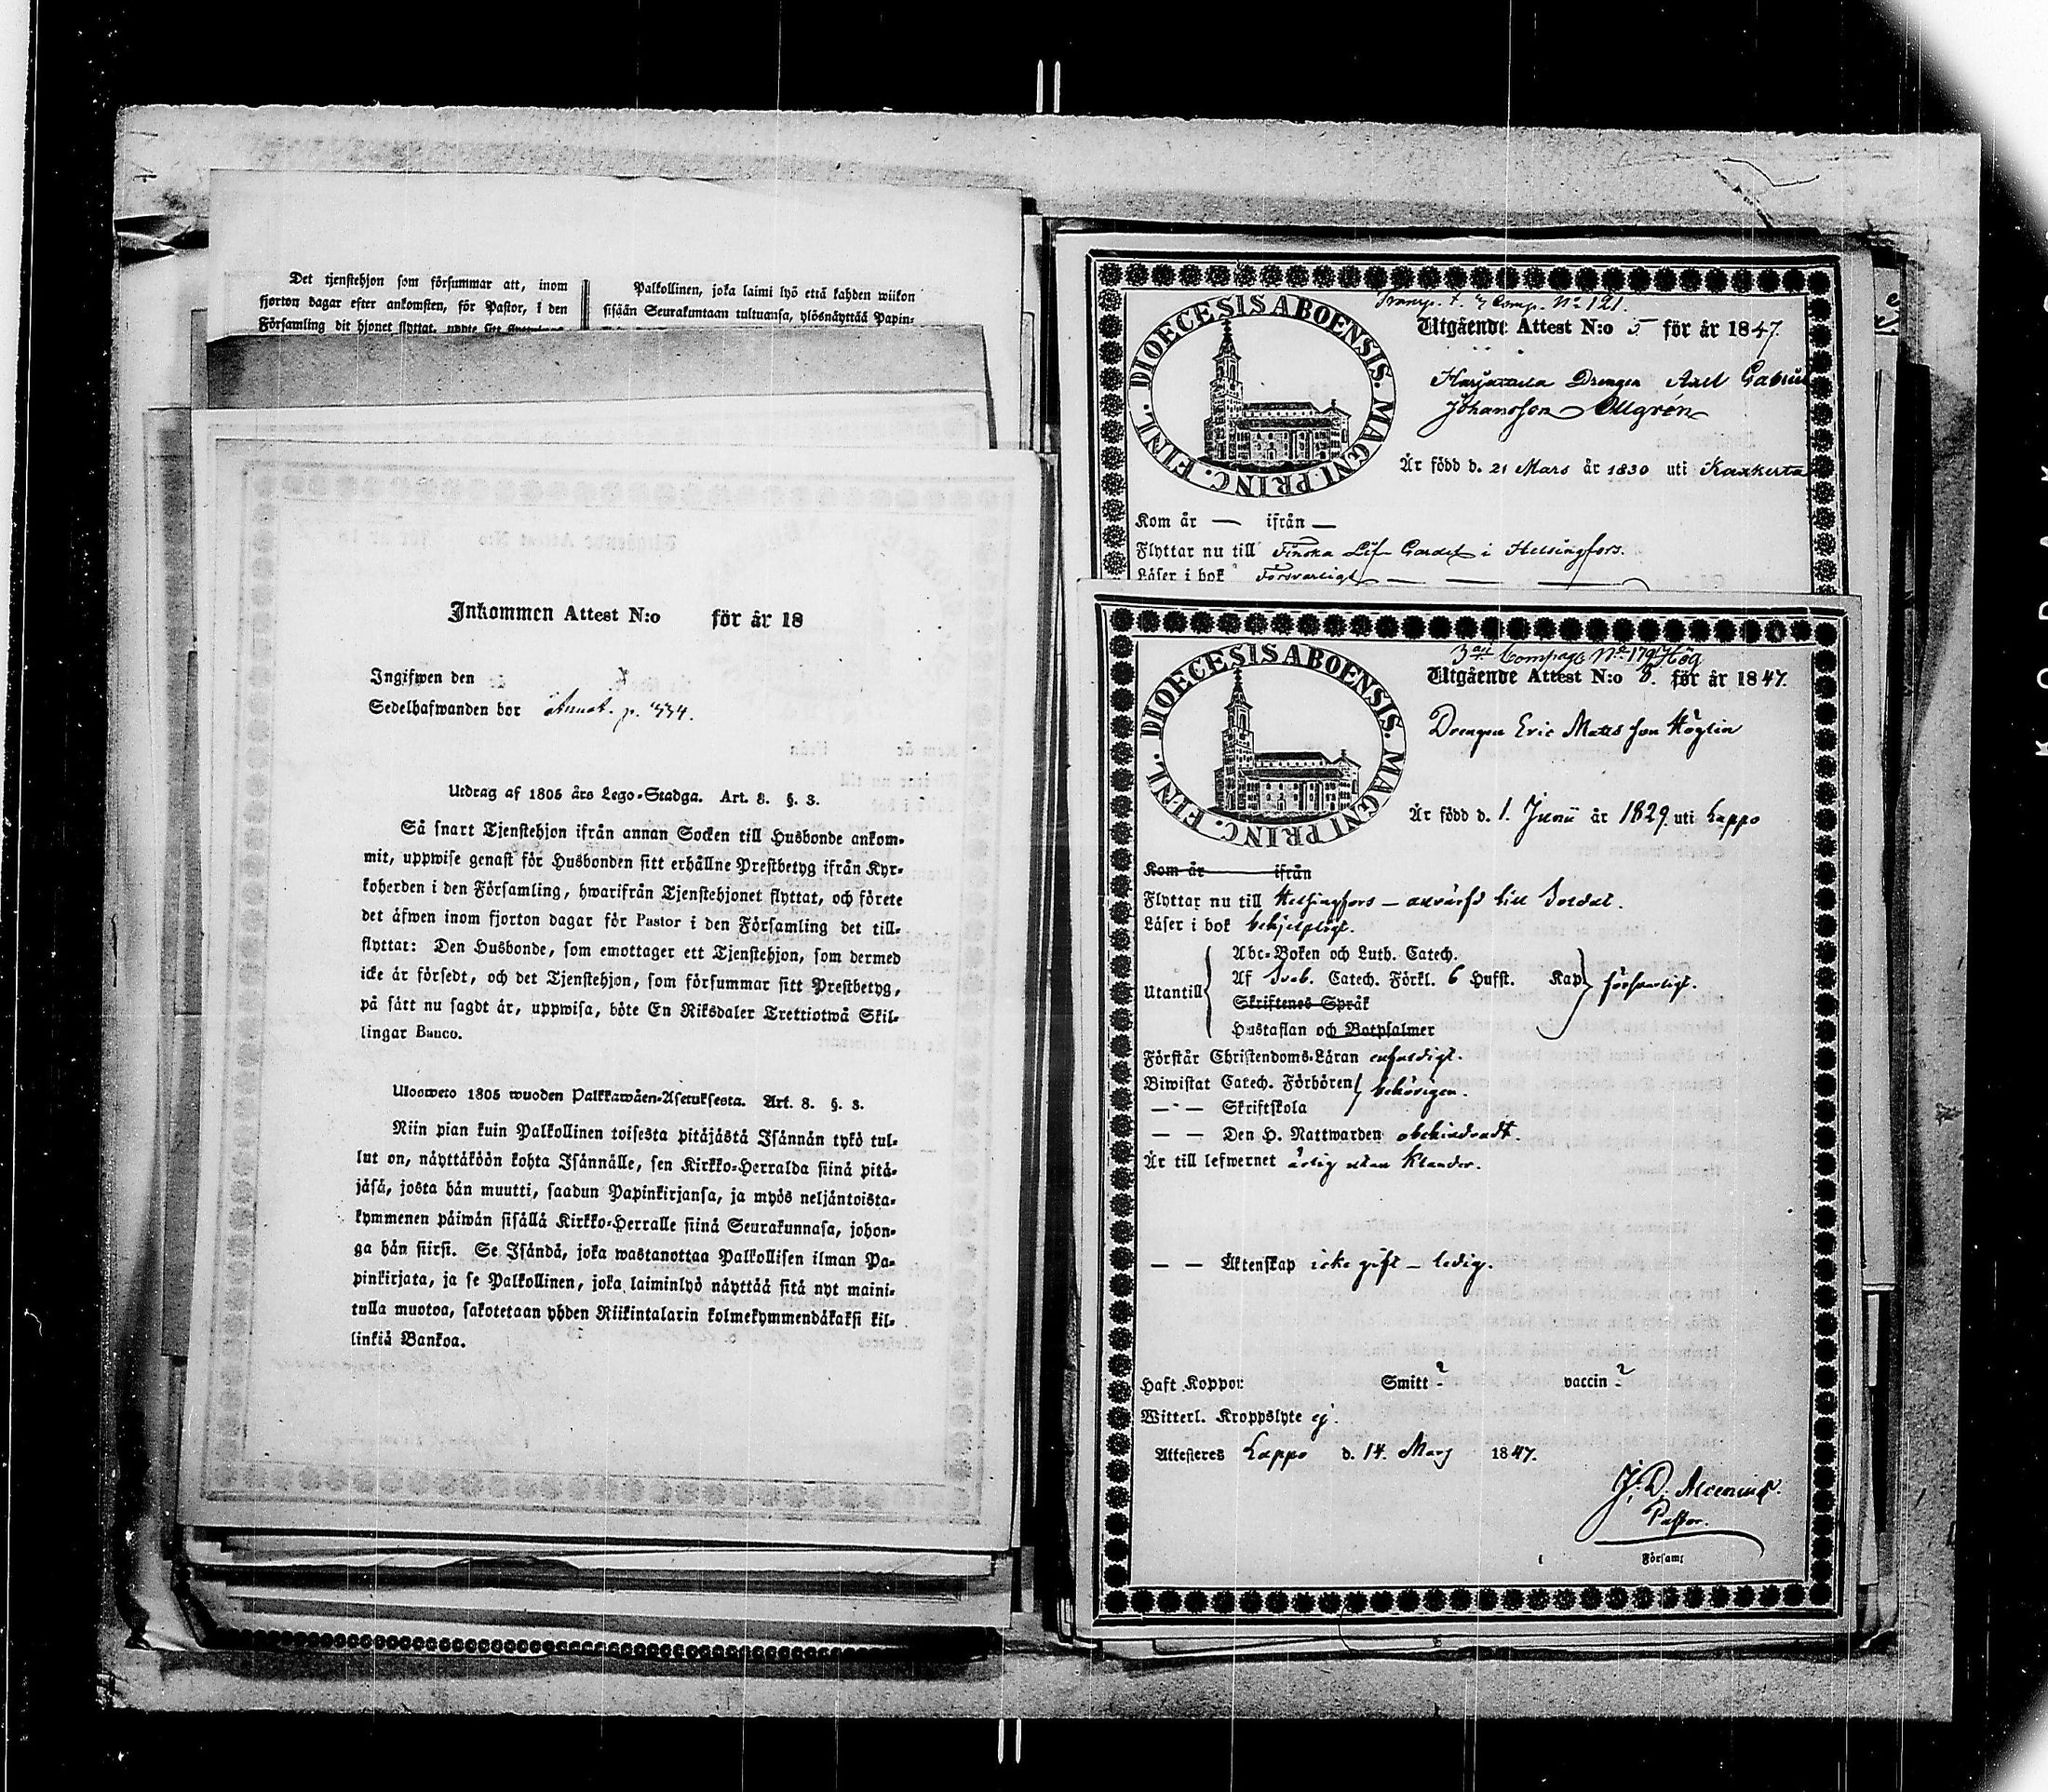 Det tjenstehjon som försummar att, inom
fjorton dagar efter ankomsten, för Pastor, i den
Församling dit hjonet flyttat, uppte sitt
Palkollinen, joka laimi lyö että kahden wiikon
sisään Seurakuntaan tultuansa, ylösnäyttää Papin-
Inkommen Attest N:o för år 18
Ingifwen den
Sedelhafwanden bor Annot. p. 434.
Utdrag af 1805 års Lego-Stadga. Art. 8. §. 3.
Så snart Tjenstehjon ifrån annan Socken till Husbonde ankom-
mit, uppwise genast för Husbonden sitt erhållne Prestbetyg ifrån Kyr-
koherden i den Församling, hwarifrån Tjenstehjonet flyttat, och förete
det äfwen inom fjorton dagar för Pastor i den Församling det till-
flyttat: Den Husbonde, som emottager ett Tjenstehjon, som dermed
icke är försedt, och det Tjenstehjon, som försummar sitt Prestbetyg,
på sätt nu sagdt är, uppwisa, böte En Riksdaler Trettiotwå Skil-
lingar Banco.
Ulosweto 1805 wuoden Palkkawäen-Asetuksesta. Art. 8. §. 3.
Niin pian kuin Palkollinen toisesta pitäjästä Isännän tykö tul-
lut on, näyttäköön kohta Isännälle, sen Kirkko-Herralda siinä pitä-
jäsä, josta hän muutti, saadun Papinkirjansa, ja myös neljäntoista-
kymmenen päiwän sisällä Kirkko-Herralle siinä Seurakunnasa, johon-
ga hän siirsi. Se Isändä, joka wastanottaa Palkollisen ilman Pa-
pinkirjata, ja se Palkollinen, joka laiminlyö näyttää sitä nyt maini-
tulla muotoa, sakotetaan yhden Riikintalarin kolmekymmendäkaksi kil-
linkiä Bankoa.
Comp. No 121.
DIOECESIS ABOENSIS. MAGNI PRINC. FINL.
Utgående Attest N:o 5 för år 1847.
Harjattula Drengen Axel Gabriel
Johansson Ollgrén
Är född d. 21 Mars år 1830 uti Kaxkerta
Kom år — ifrån —
Flyttar nu till Finska Lif Gardet i Helsingfors.
Läser i bok Försvarligt — — —
3die Compagn No 179 Hög
DIOECESIS ABOENSIS. MAGNI PRINC. FINL.
Utgående Attest N:o 8. för år 1847.
Drengen Eric Matts son Höglin
Är född d. 1. Junii år 1829. uti Lappo
Kom år ifrån
Flyttar nu till Helsingfors — anvärfd till Soldat.
Läser i bok behjelpligt.
Utantill
Abc-Boken och Luth. Catech.
Af Sveb. Catech. Förkl. 6 Hufst. Kap
Skriftenes Språk
Hustaflan och Botpsalmer
försvarligt.
Förstår Christendoms-Läran enfaldigt.
Biwistat Catech. Förhören
— - — Skriftskola
behörigen.
— — Den H. Nattwarden obehindradt.
Är till lefwernet ärlig utan klander.
— — Äktenskap icke gift — ledig.
Haft Koppor: Smitt ? vaccin ?
Witterl. Kroppslyte ej.
Attesteres Lappo d. 14. Mars 1847.
J. D. Alcenius.
Pastor.
i Församl
KODAK